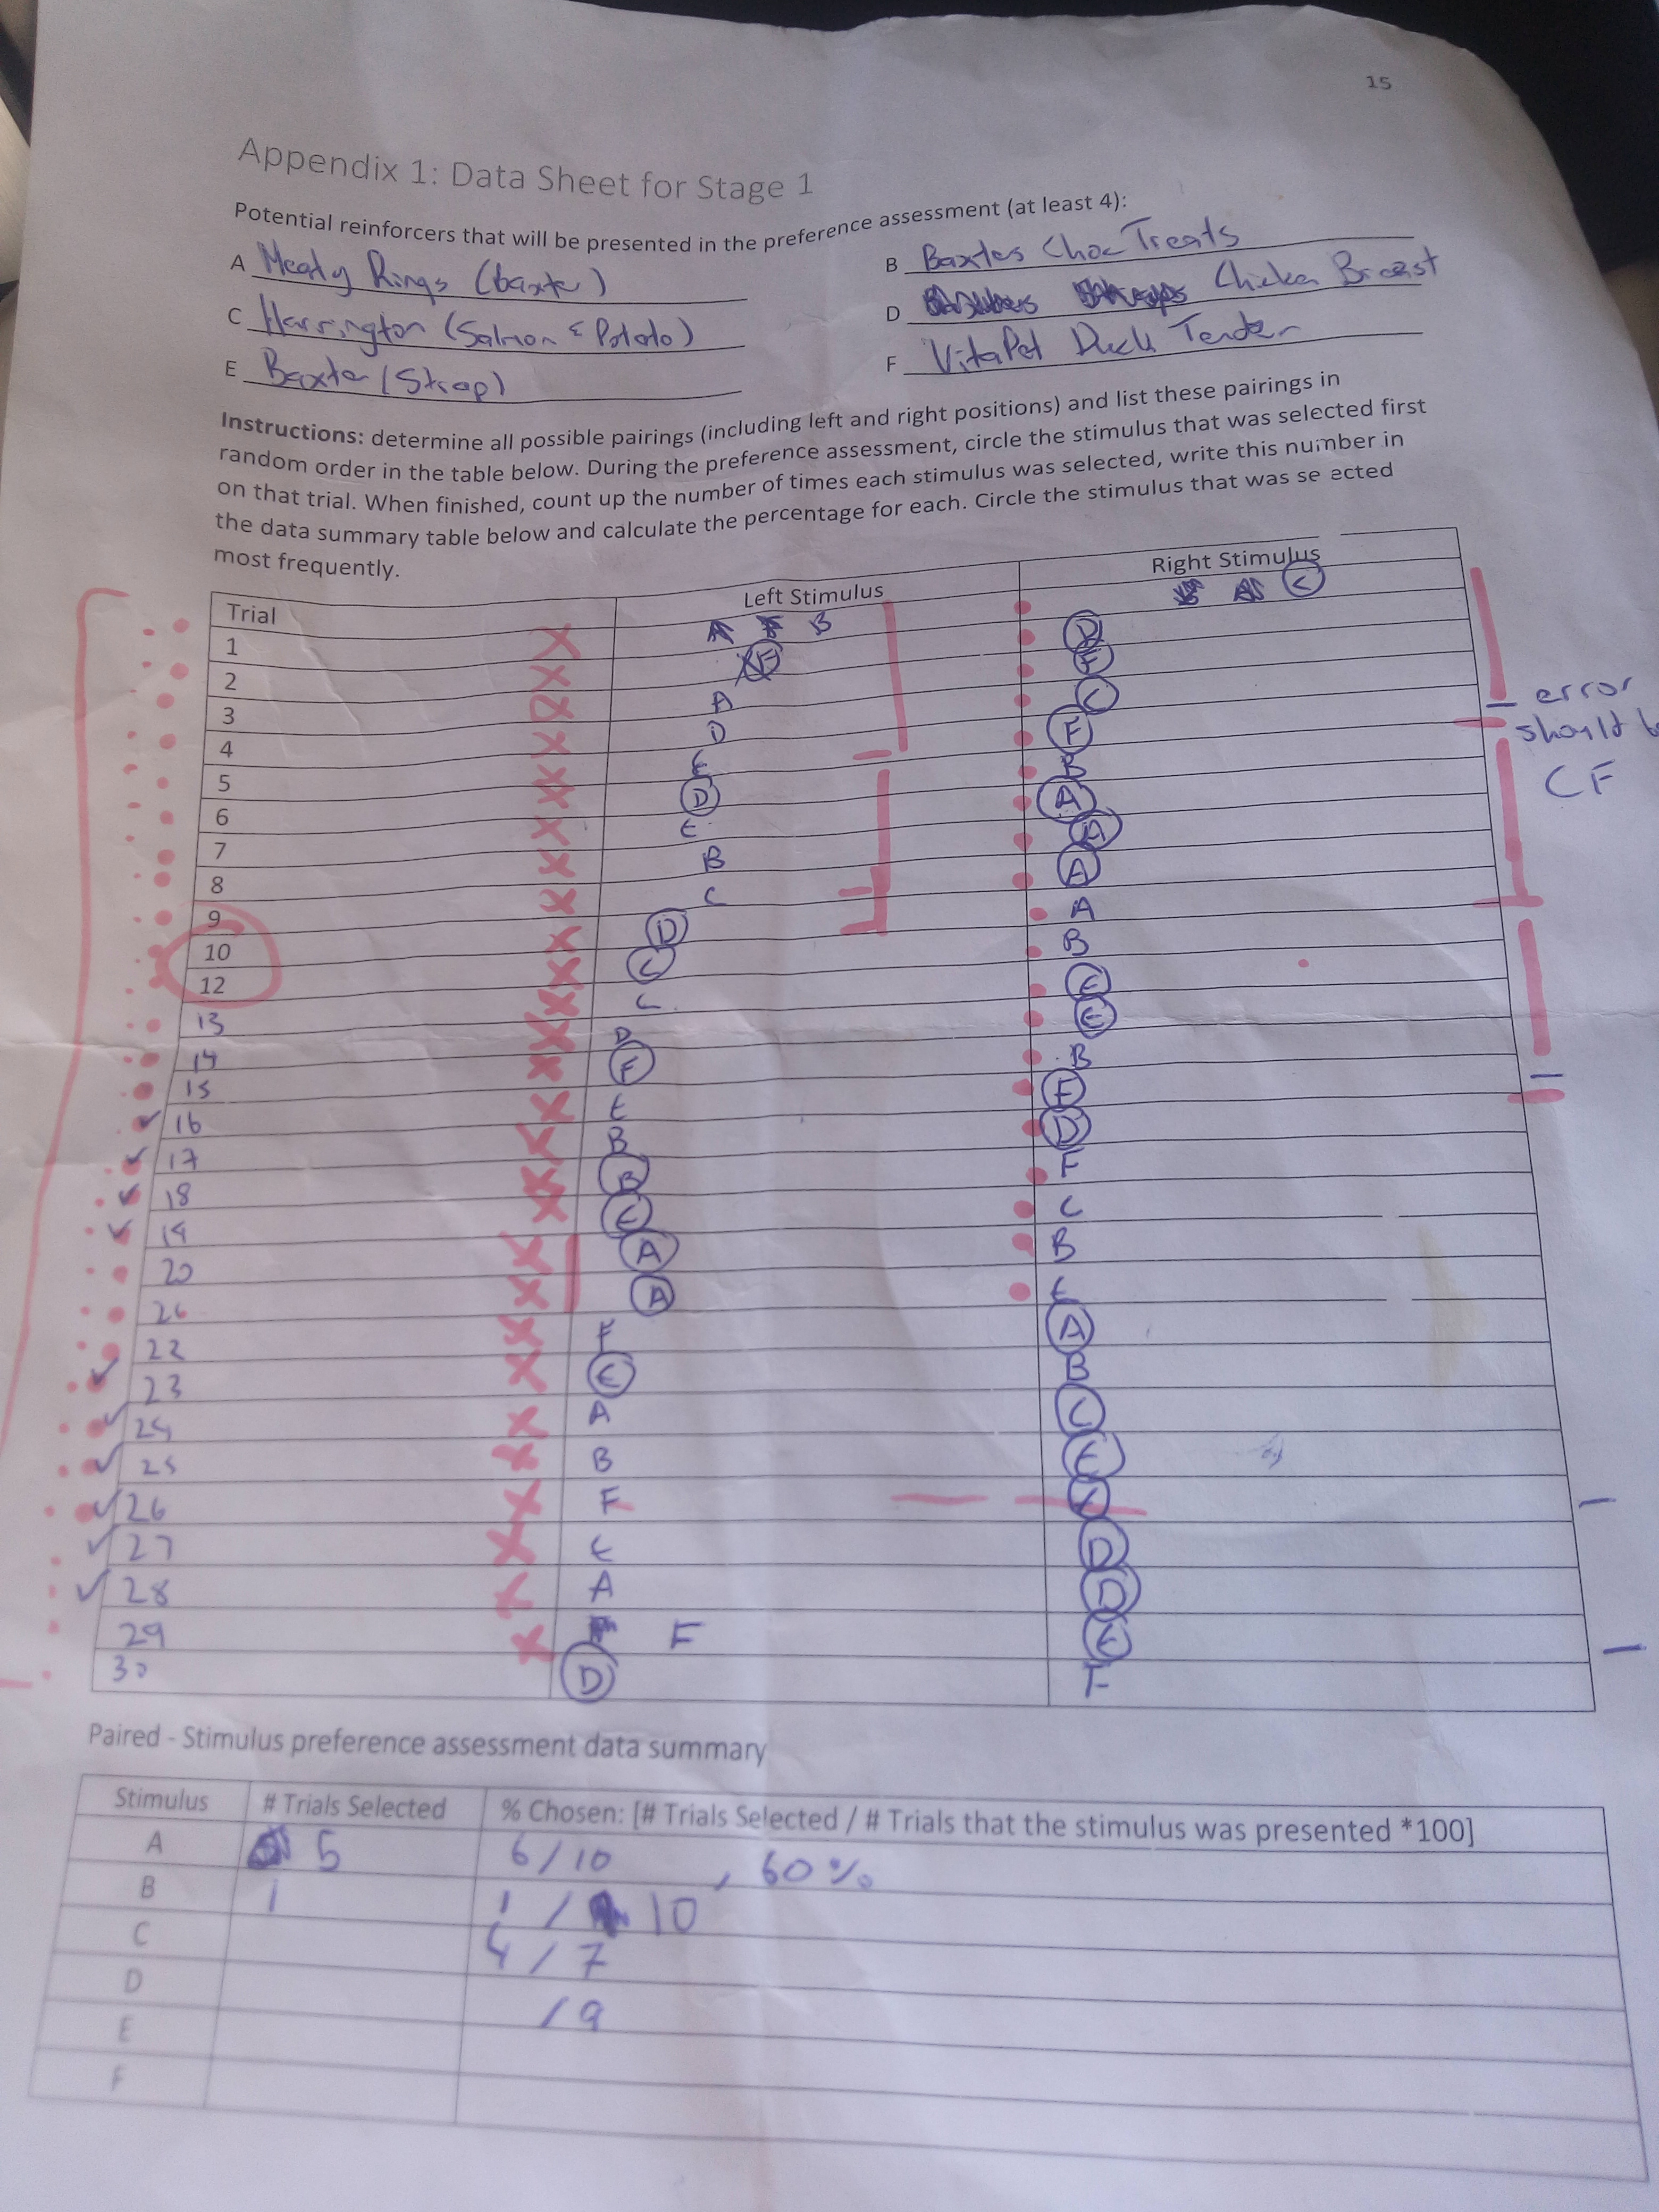 15
Appendix 1: Data Sheet for Stage 1
Potential reinforcers that will be presented in the preference assessment (at least 4):
A Meaty Rings (baxter) B Baxters Choc Treats
C Harrington (Salmon & Potato) D Chicken Breast
E Baxter (Strap) F VitaPet Duck Tender
Instructions: determine all possible pairings (including left and right positions) and list these pairings in
random order in the table below. During the preference assessment, circle the stimulus that was selected first
on that trial. When finished, count up the number of times each stimulus was selected, write this number in
the data summary table below and calculate the percentage for each. Circle the stimulus that was se ected
most frequently.
Trial Left Stimulus Right Stimulus
1 B C
2 F D
3 A F
4 D C
5 E F
6 D B
7 E A
8 B A
9 C A
10 D A
12 C B
13 C E
14 D E
15 F B
16 E F
17 B D
18 B F
19 E C
20 A B
26 A E
22 F A
23 E B
24 A C
25 B E
26 F
27 E D
28 A D
29 F E
30 D F
error
should b
CF
Paired - Stimulus preference assessment data summary
Stimulus # Trials Selected % Chosen: [# Trials Selected / # Trials that the stimulus was presented *100]
A 5 6/10 , 60%
B 1 1 / 10
C 4 / 7
D / 9
E
F